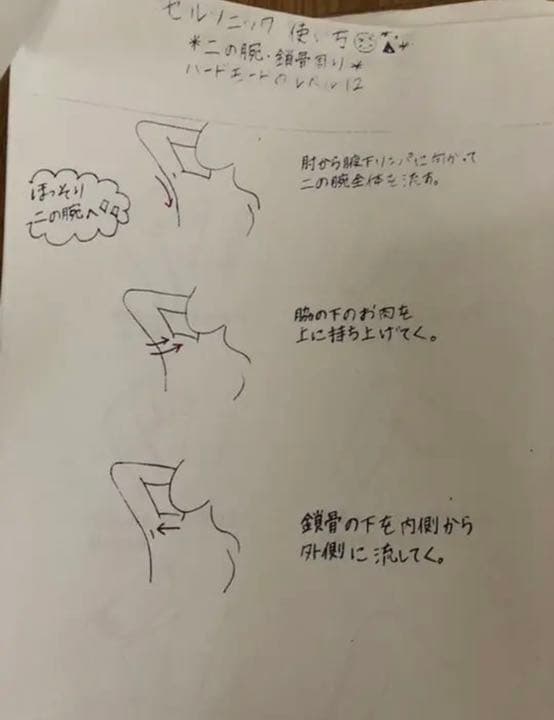 セルソニック 使い方
*二の腕・鎖骨周り*
ハードモードのレベル12
肘から腋下リンパに向かって
二の腕全体を流す。
ほっそり
二の腕へ
脇の下のお肉を
上に持ち上げてく。
鎖骨の下を内側から
外側に流してく。